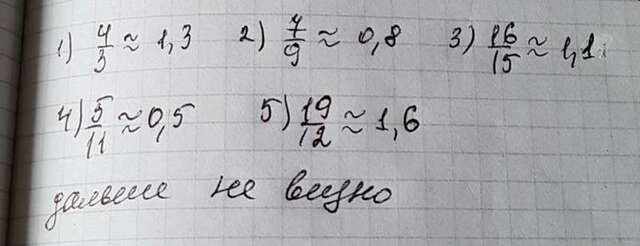 1) 4/3 ≈ 1,3 2) 7/9 ≈ 0,8 3) 16/15 ≈ 1,1
4) 5/11 ≈ 0,5 5) 19/12 ≈ 1,6
дальше не видно